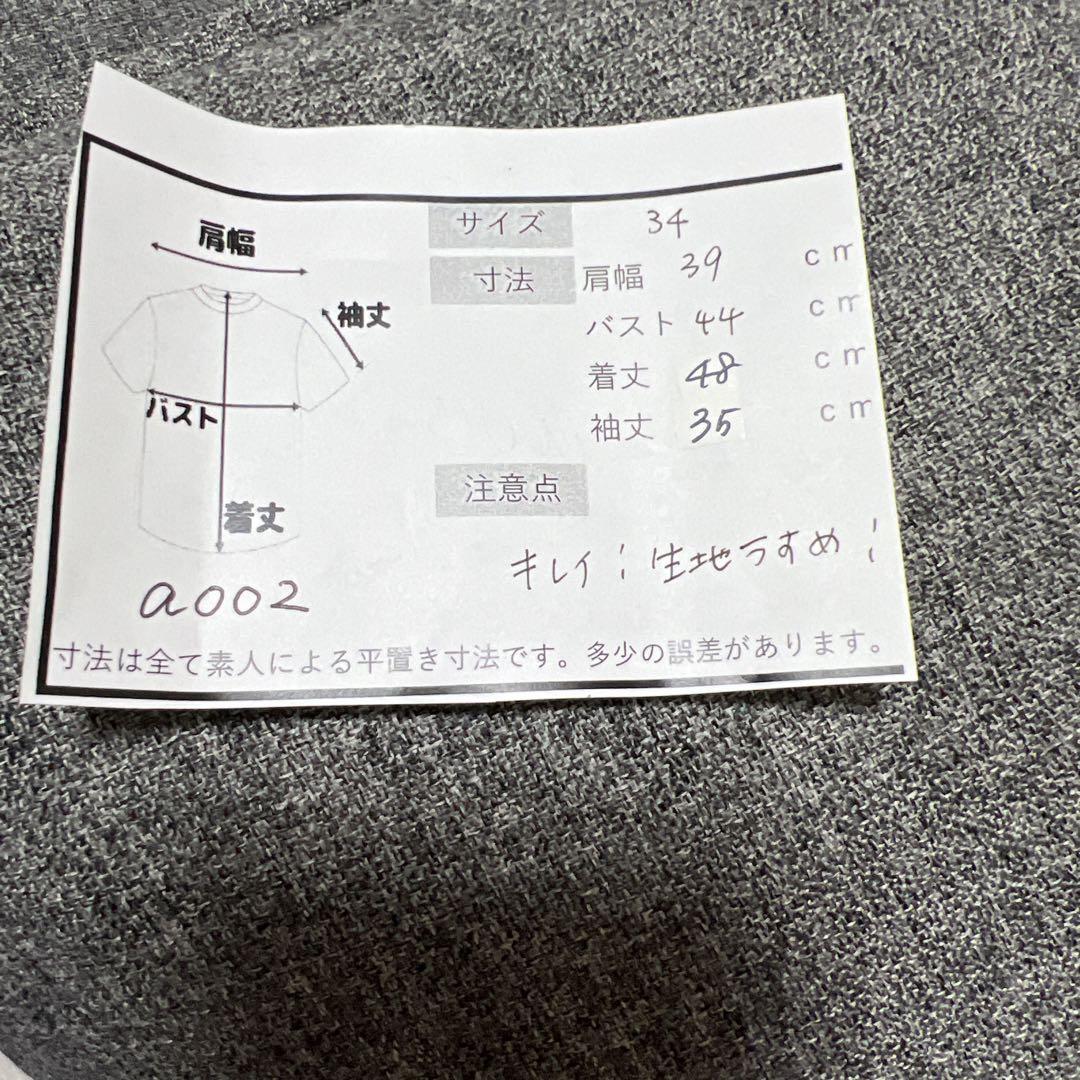 肩幅
袖丈
バスト
着丈
a002
サイズ 34
寸法 肩幅 39 cm
バスト 44 cm
着丈 48 cm
袖丈 35 cm
注意点
キレイ! 生地うすめ!
寸法は全て素人による平置き寸法です。多少の誤差があります。